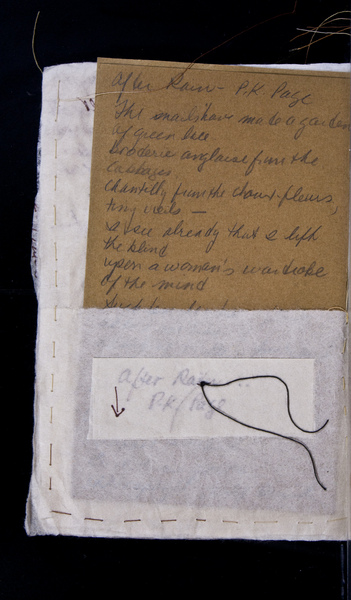 After Rain - P.K. Page
The snails have made a garden
of green lace
broderie anglaise from the
cabbages
Chantilly from the choux-fleurs,
tiny veils —
I see already that I lift
the blind
upon a woman's wardrobe
of the mind
After Rain ..
P.K. Page